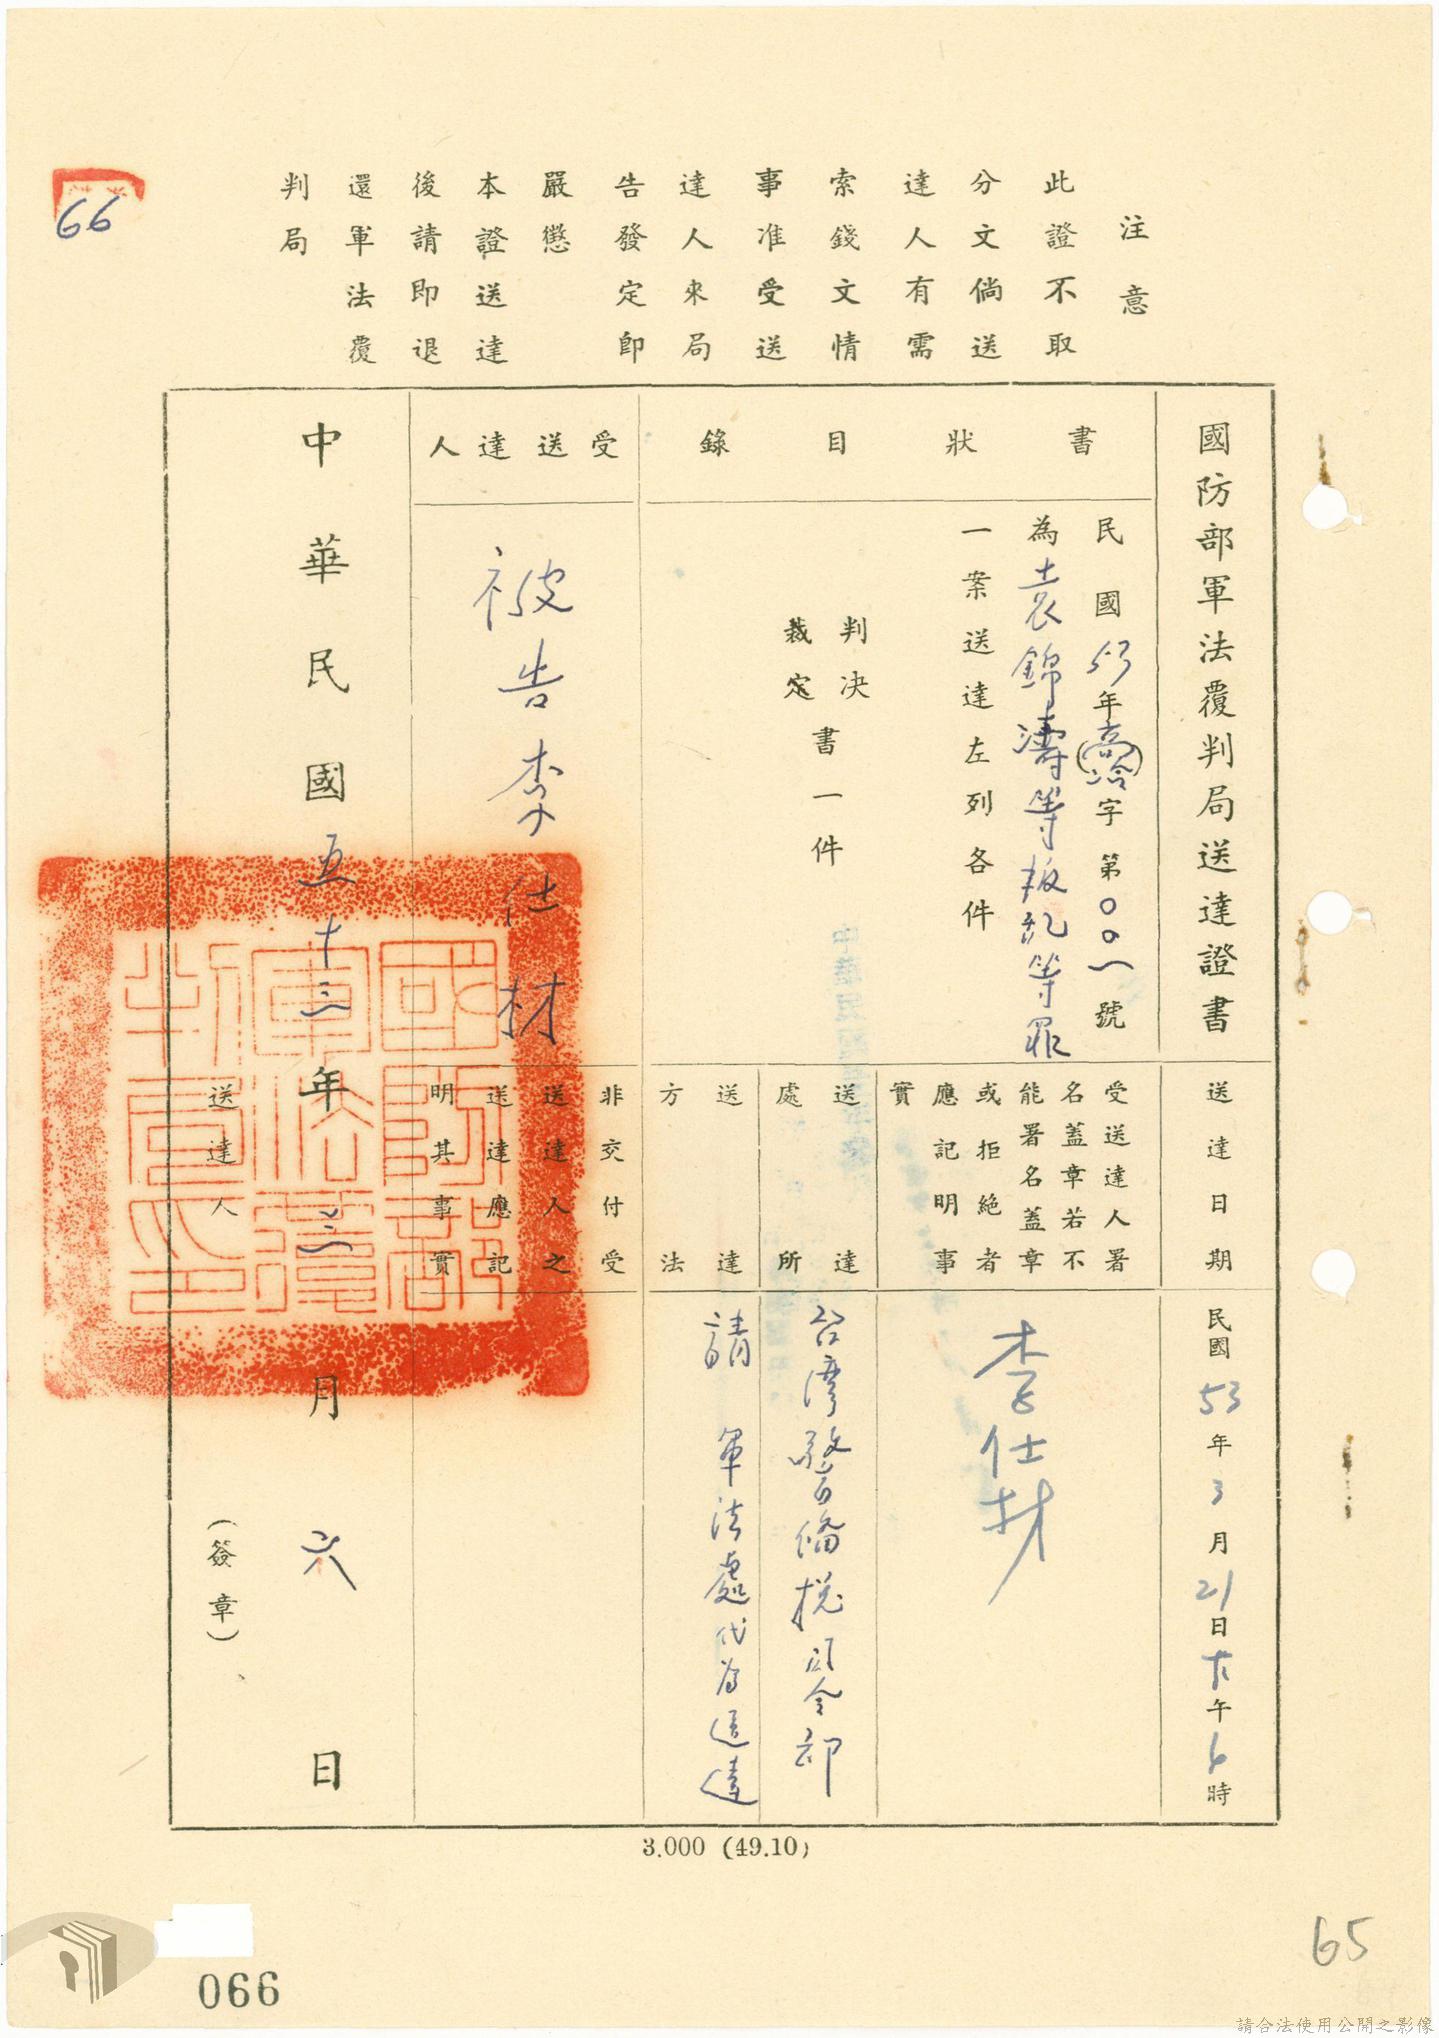 注意
此證不取
分文倘送
達人有需
索錢文情
事准受送
達人來局
告發定即
嚴懲
本證送達
後請即退
還軍法覆
判局
66
國防部軍法覆判局送達證書
書狀目錄
民國53年(高洽)字第〇〇一號
為袁錦濤等叛乱等罪
一案送達左列各件
判決
裁定
書一件
受送達人
被告李仕材
送達日期
民國53年3月21日下午6時
受送達人署
名蓋章若不
能署名蓋章
或拒絕者
應記明事
實
李仕材
送達
處所
台灣警備総司令部
送達
方法
請 軍法處代為送達
非交付受
送達人之
送達應記
明其事實
中華民國五十三年三月六日
國防部
軍法覆
判局印
送達人
(簽章)
3.000 (49.10)
066
65
請合法使用公開之影像